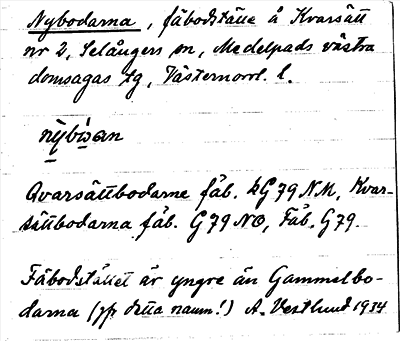 Nybodarna, fäbodställe å Kvarsätt
nr 2, Selångers sn, Medelpads västra
domsagas tg, Västernorrl. l.
nỳbọan
Qvarsättbodarne fäb. kG79 NM, Kvar-
sättbodarna fäb. G79 NO, Fäb. G79.
Fäbodstället är yngre än Gammelbo-
darna (jfr detta namn!) A. Vestlund 1934